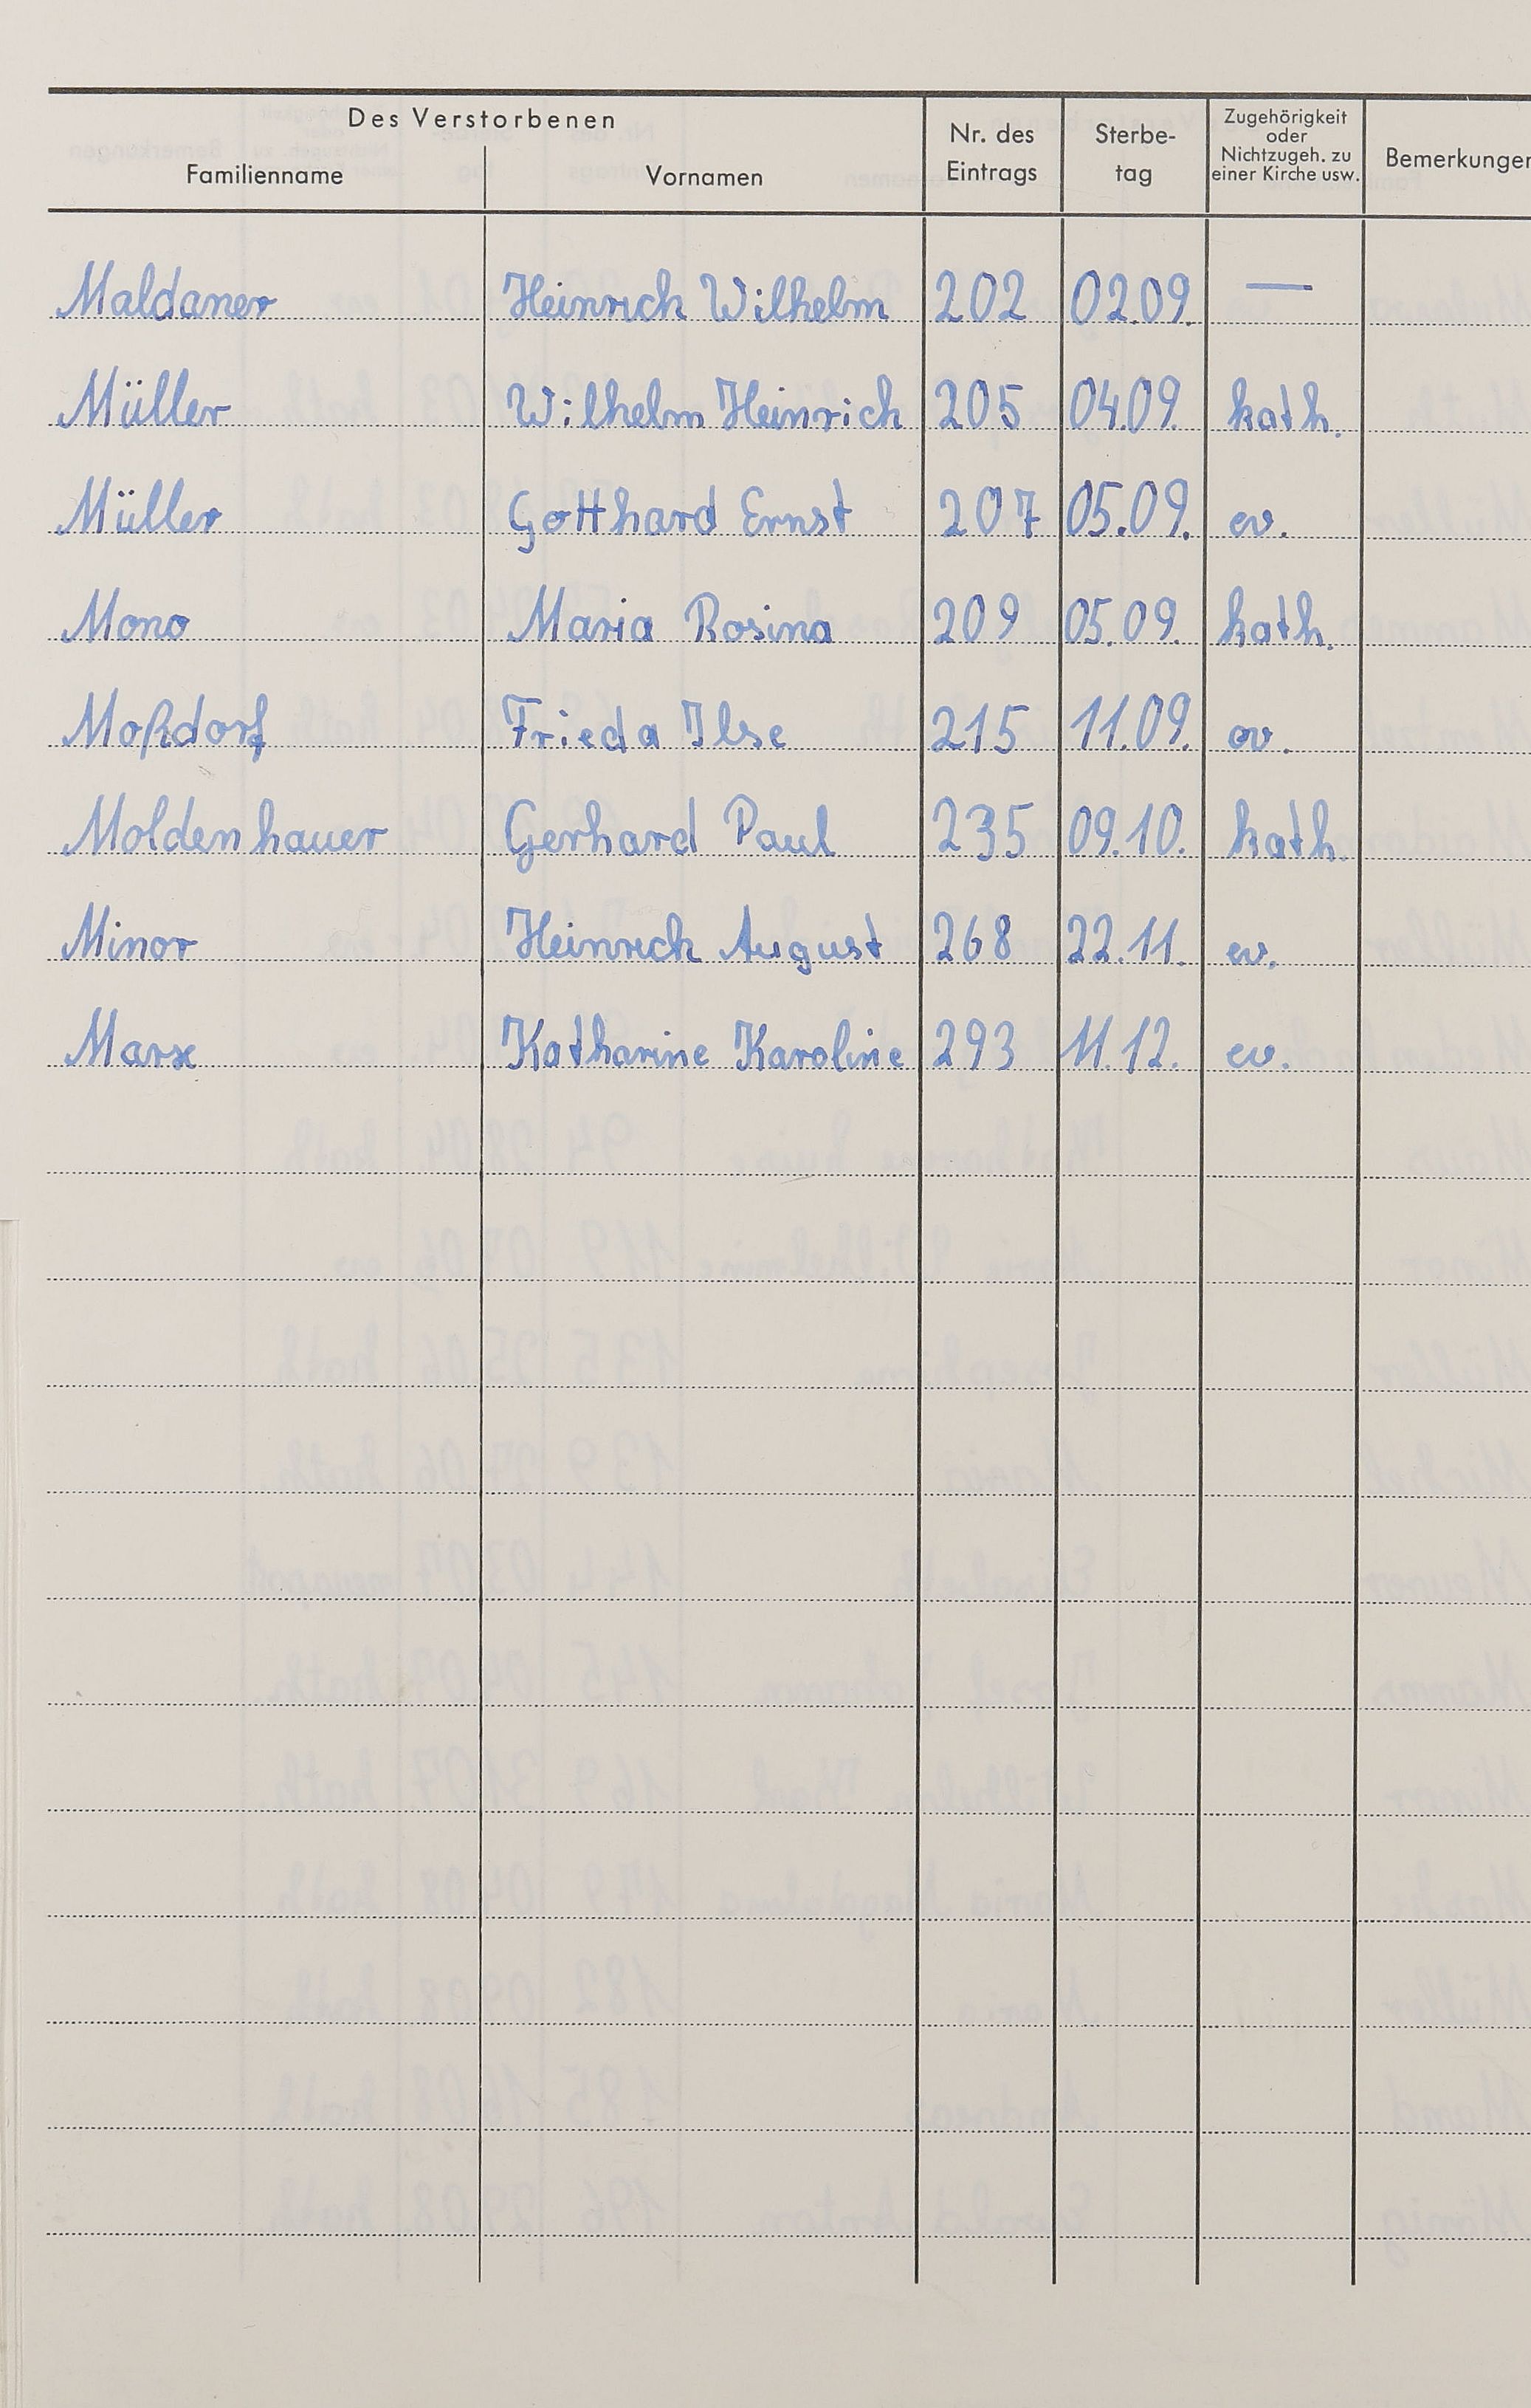 Des Verstorbenen
Familienname Vornamen Nr. des Eintrags Sterbe- tag Zugehörigkeit oder Nichtzugeh. zu einer Kirche usw. Bemerkungen
Maldaner Heinrich Wilhelm 202 02.09. —
Müller Wilhelm Heinrich 205 04.09. kath.
Müller Gotthard Ernst 207 05.09. ev.
Mono Maria Rosina 209 05.09. kath.
Moßdorf Frieda Ilse 215 11.09. ev.
Moldenhauer Gerhard Paul 235 09.10. kath.
Minor Heinrich August 268 22.11. ev.
Marx Katharine Karoline 293 11.12. ev.